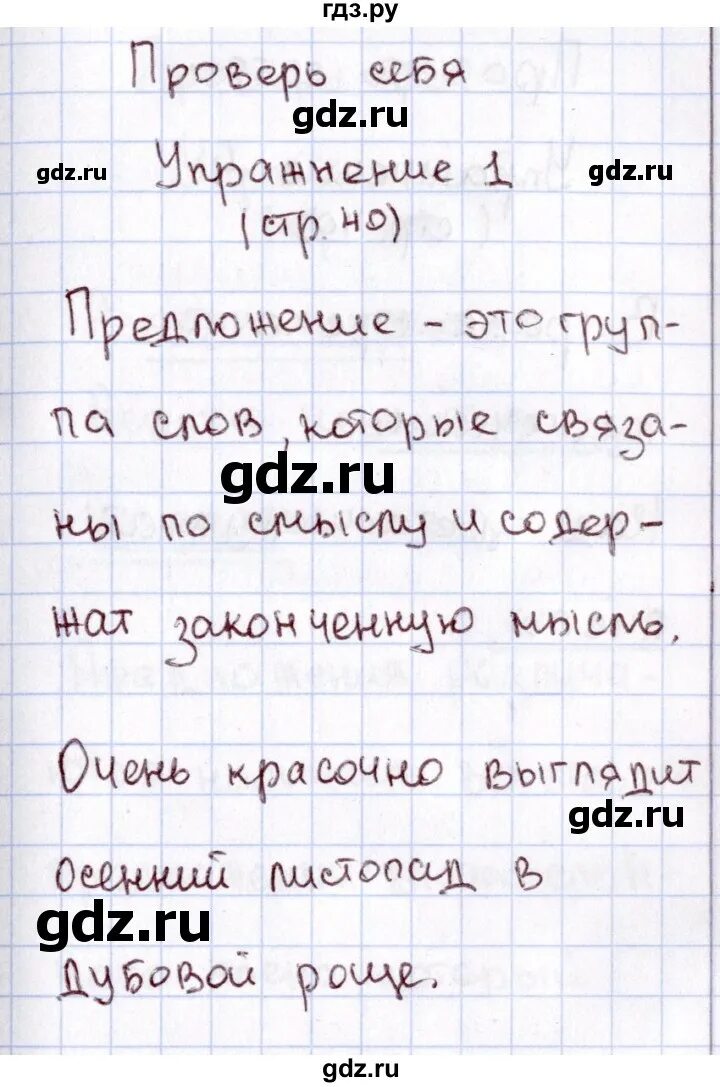 гдз.ру
Проверь себя
gdz.ru
gdz.ru
Упражнение 1
gdz.ru
(стр. 40)
Предложение - это груп-
па слов, которые связа-
gdz.ru
ны по смыслу и содер-
жат законченную мысль.
Очень красочно выглядит
gdz.ru
осенний листопад в
gdz.ru
дубовой роще.
gdz.ru